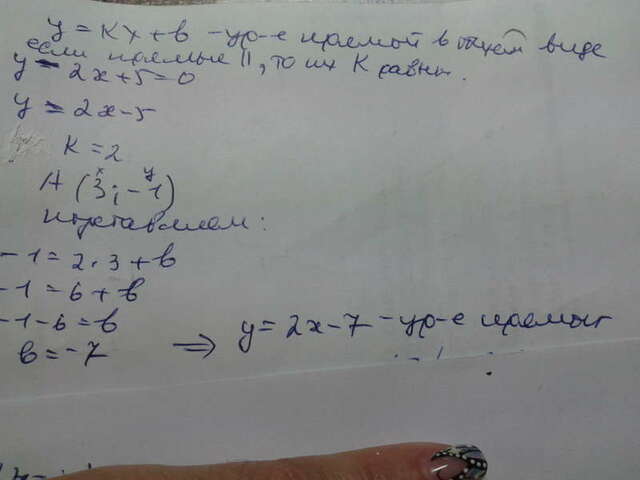 y = kx + b - ур-е прямой в общем виде
если прямые ||, то их k равны.
y - 2x + 5 = 0
y = 2x - 5
k = 2
x y
A (3; -1)
подставляем:
-1 = 2·3 + b
-1 = 6 + b
-1 - 6 = b
b = -7 ⇒ y = 2x - 7 - ур-е прямой